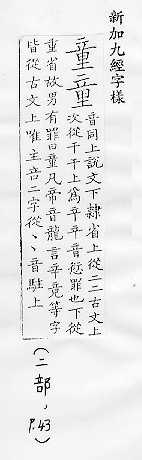 新加九經字樣
童童
音同上說文下隸省上從二二古文上
次從干干上爲辛辛音愆罪也下從
重省故男有罪曰童凡帝音龍言辛竟等字
皆從古文上唯主音二字從丶丶音駐上
(二部, P.43)